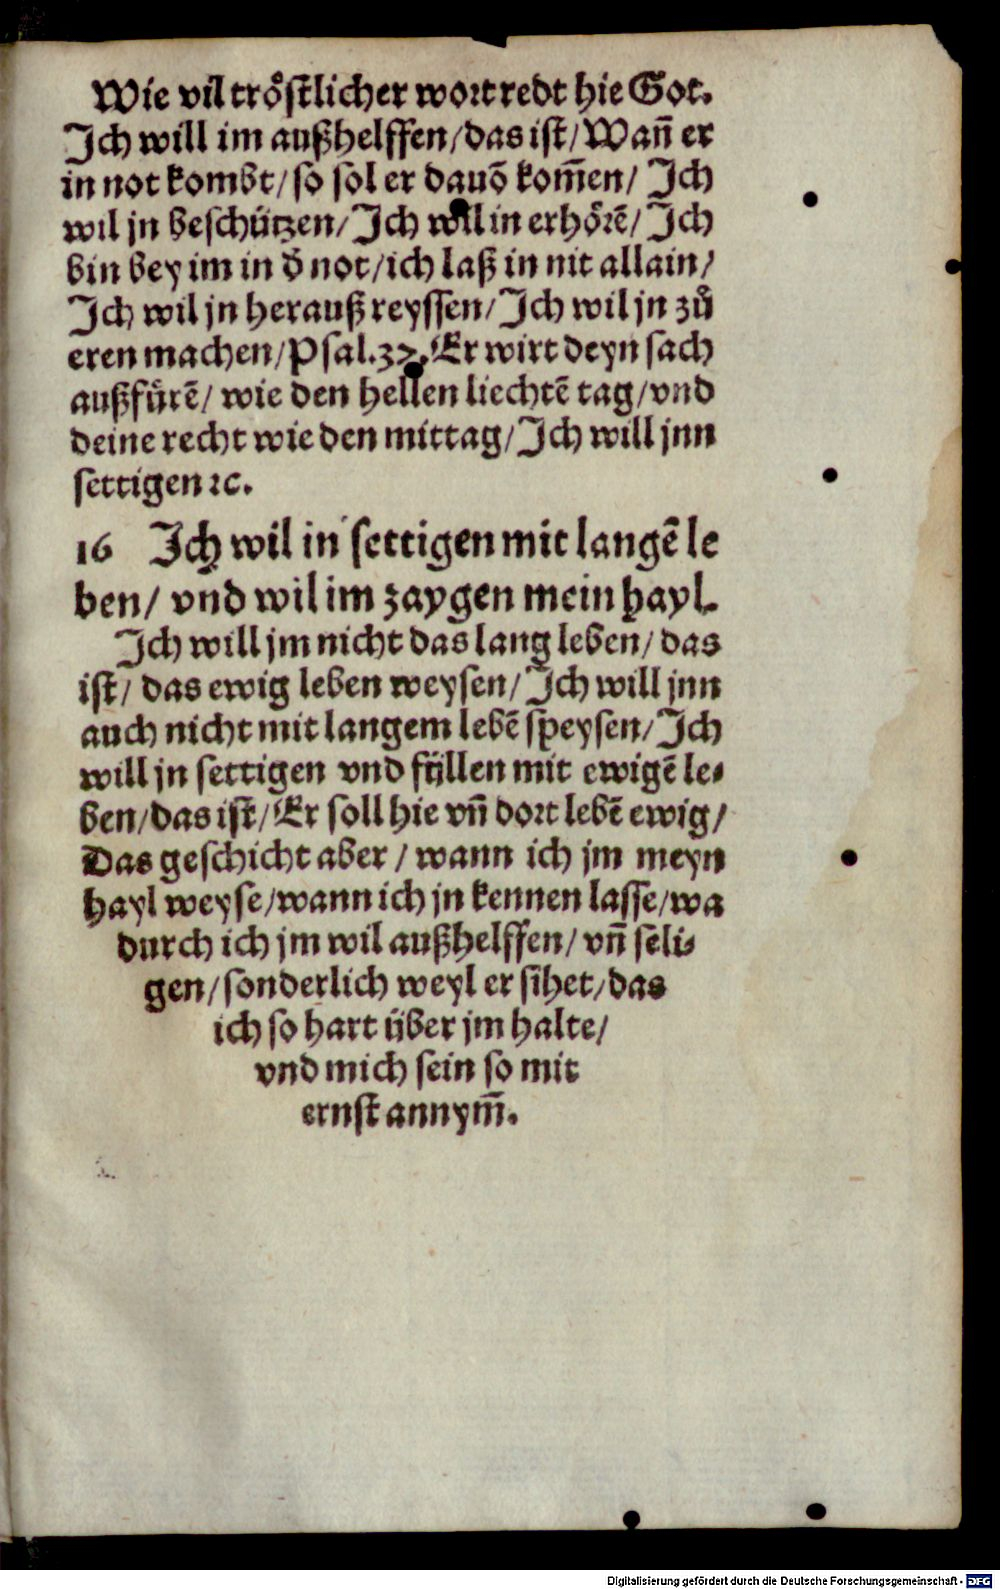 Wie vil troͤstlicher wort redt hie Got.
Ich will im außhelffen/das ist/Wañ er
in not kombt/so sol er dauõ kom̃en/ Ich
wil jn beschützen/Ich wil in erhoͤrẽ/Ich
bin bey im in d̉ not/ich laß in nit allain/
Ich wil jn herauß reyssen/Ich wil jn zuͦ
eren machen/Psal.37.Er wirt deyn sach
außfuͤrẽ/ wie den hellen liechtẽ tag/vnd
deine recht wie den mittag/Ich will jnn
settigen ꝛc.
16 Ich wil in settigen mit langẽ le
ben/ vnd wil im zaygen mein hayl.
Ich will jm nicht das lang leben/das
ist/ das ewig leben weysen/Ich will jnn
auch nicht mit langem lebẽ speysen/Ich
will jn settigen vnd fyͤllen mit ewigẽ le⸗
ben/das ist/Er soll hie vñ dort lebẽ ewig/
Das geschicht aber / wann ich jm meyn
hayl weyse/wann ich jn kennen lasse/wa
durch ich jm wil außhelffen/ vñ seli⸗
gen/sonderlich weyl er sihet/das
ich so hart über jm halte/
vnd mich sein so mit
ernst annym̃.
Digitalisierung gefördert durch die Deutsche Forschungsgemeinschaft - DFG